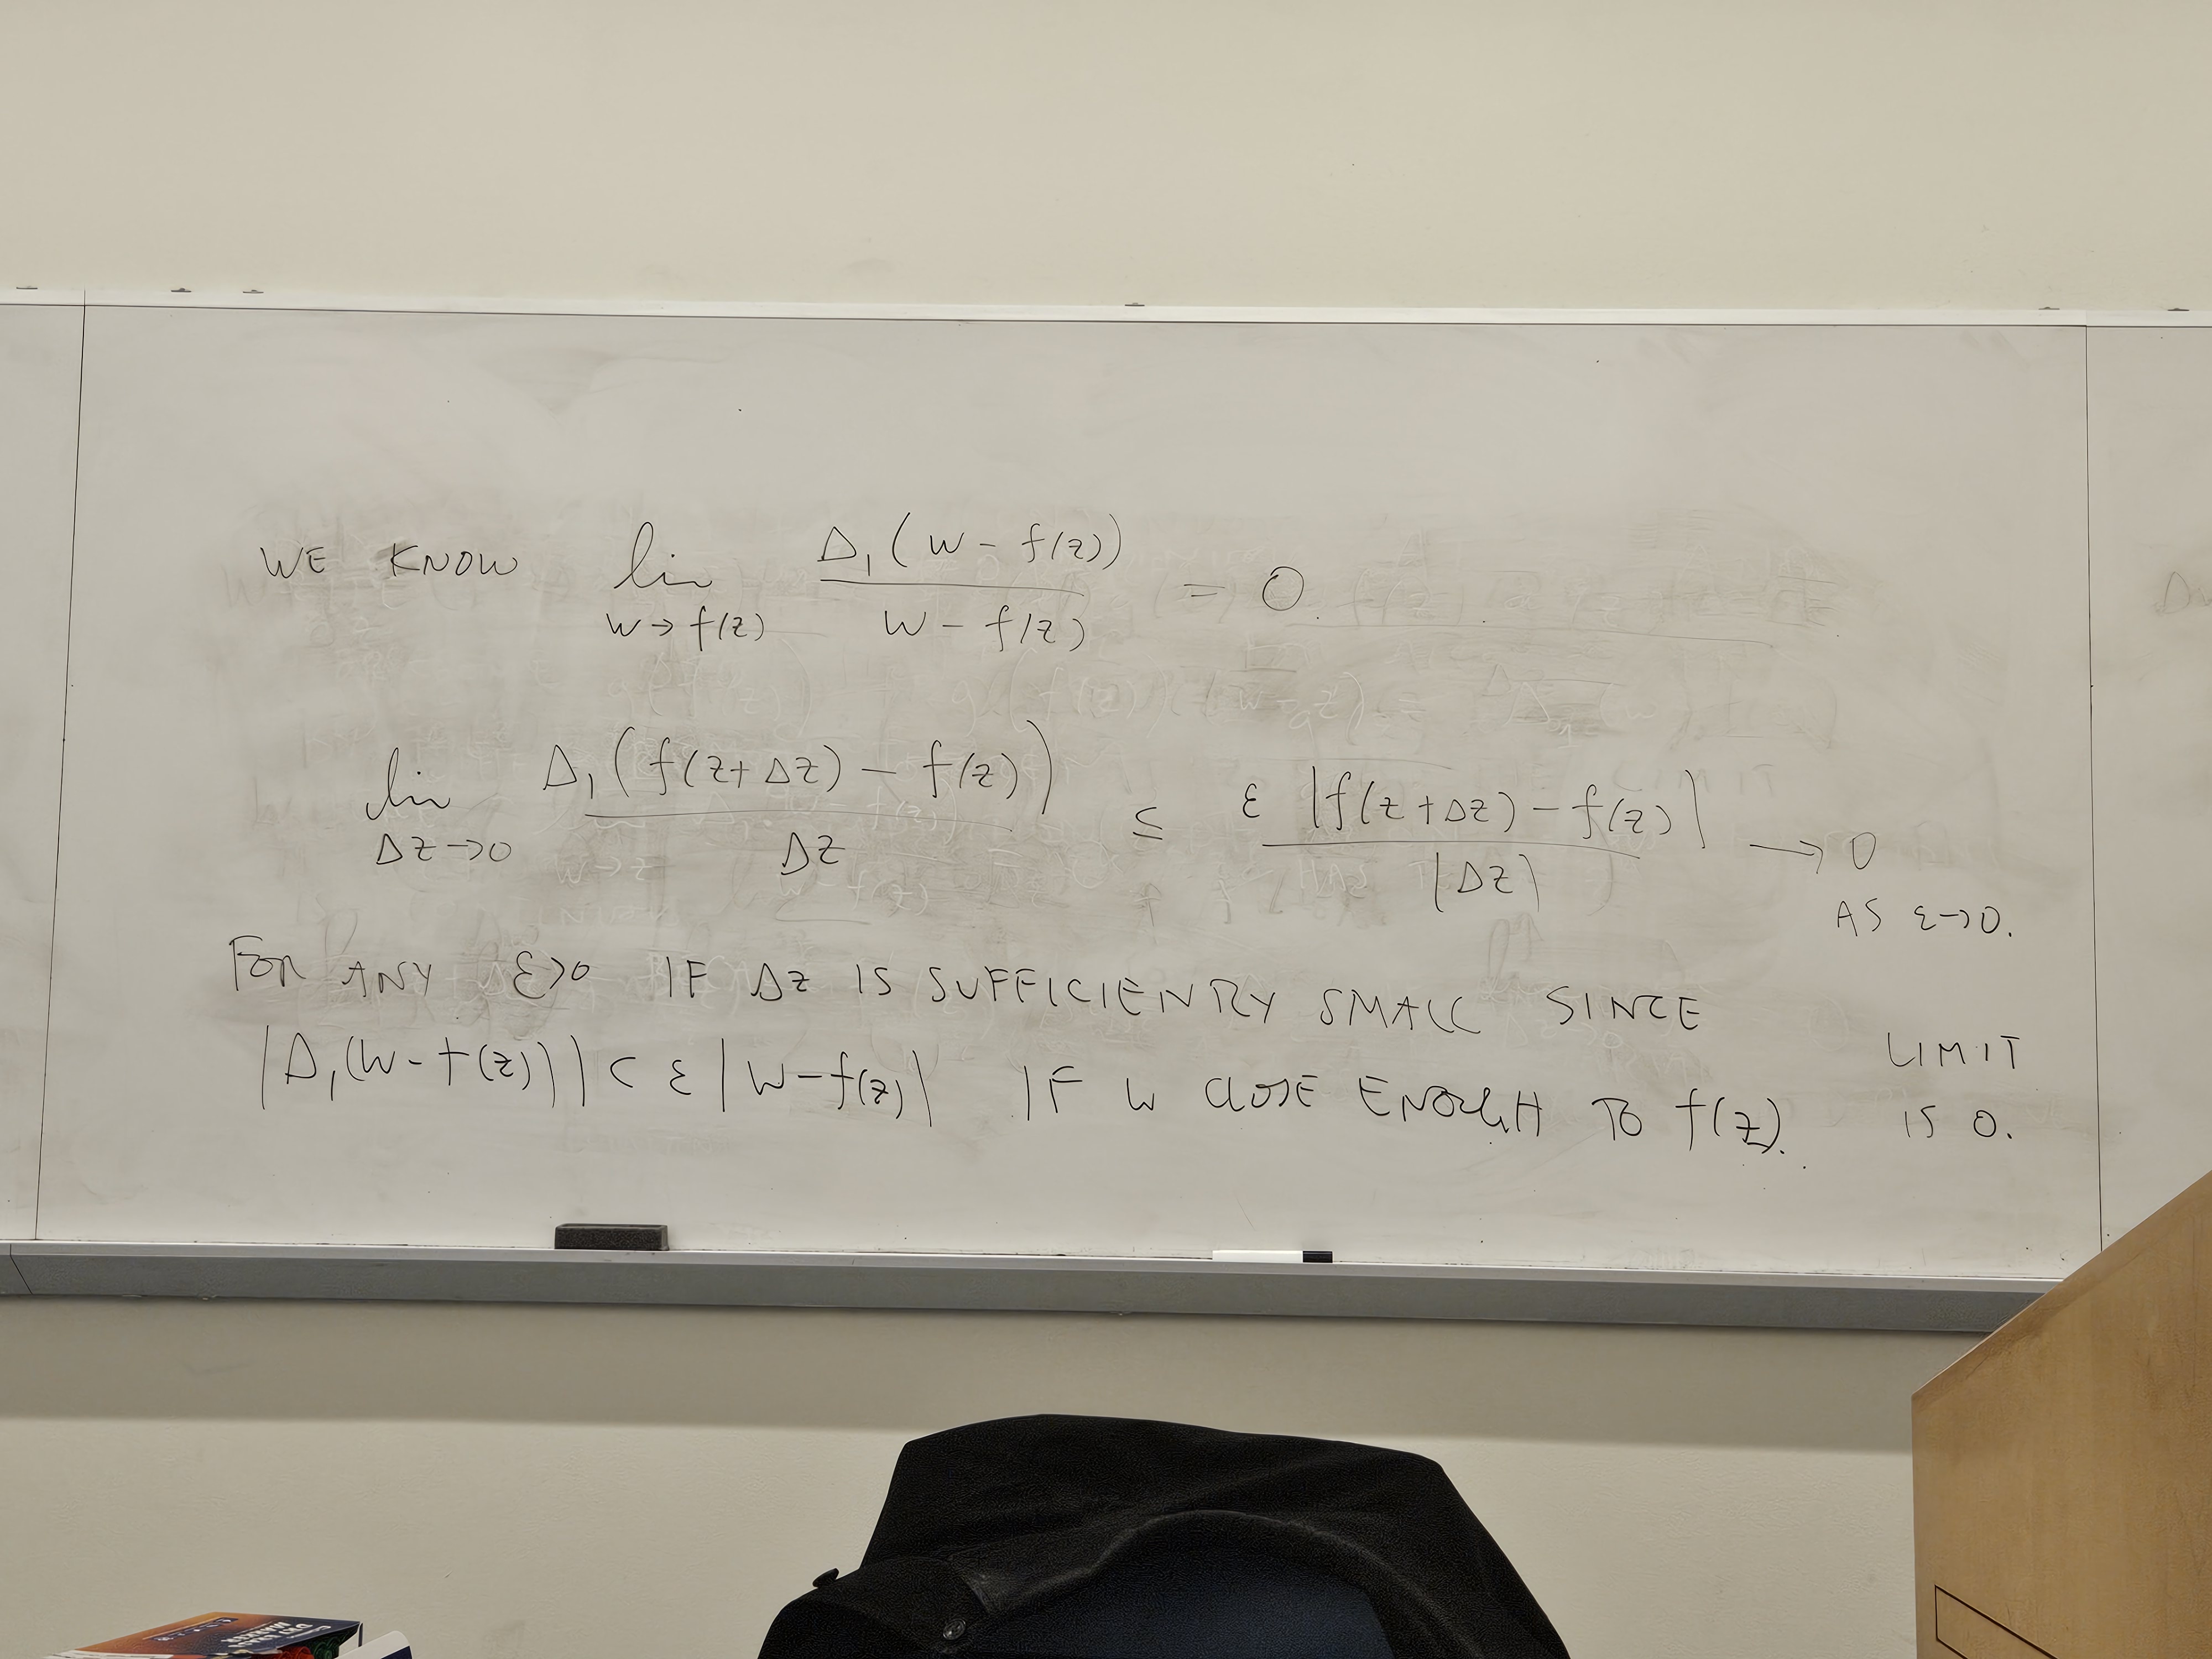 WE KNOW lim Δ₁(w - f(z)) / w - f(z) = 0.
w→f(z)
lim Δ₁(f(z+Δz) - f(z)) / Δz ≤ ε |f(z+Δz) - f(z)| / |Δz| → 0
Δz→0
AS ε→0.
FOR ANY ε>0 IF Δz IS SUFFICIENTLY SMALL SINCE
|Δ₁(w-f(z))| < ε |w-f(z)| IF w CLOSE ENOUGH TO f(z).
LIMIT
IS 0.